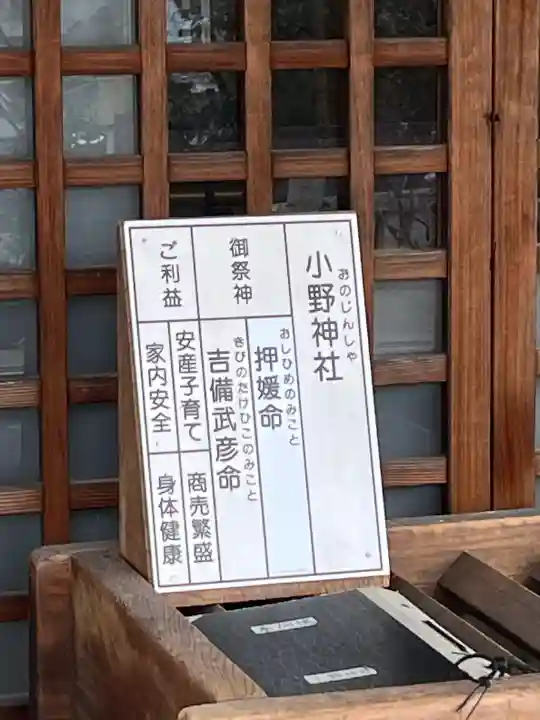 小野神社
おのじんしゃ
御祭神
押媛命
おしひめのみこと
吉備武彦命
きびのたけひこのみこと
ご利益
安産子育て
商売繁盛
家内安全
身体健康